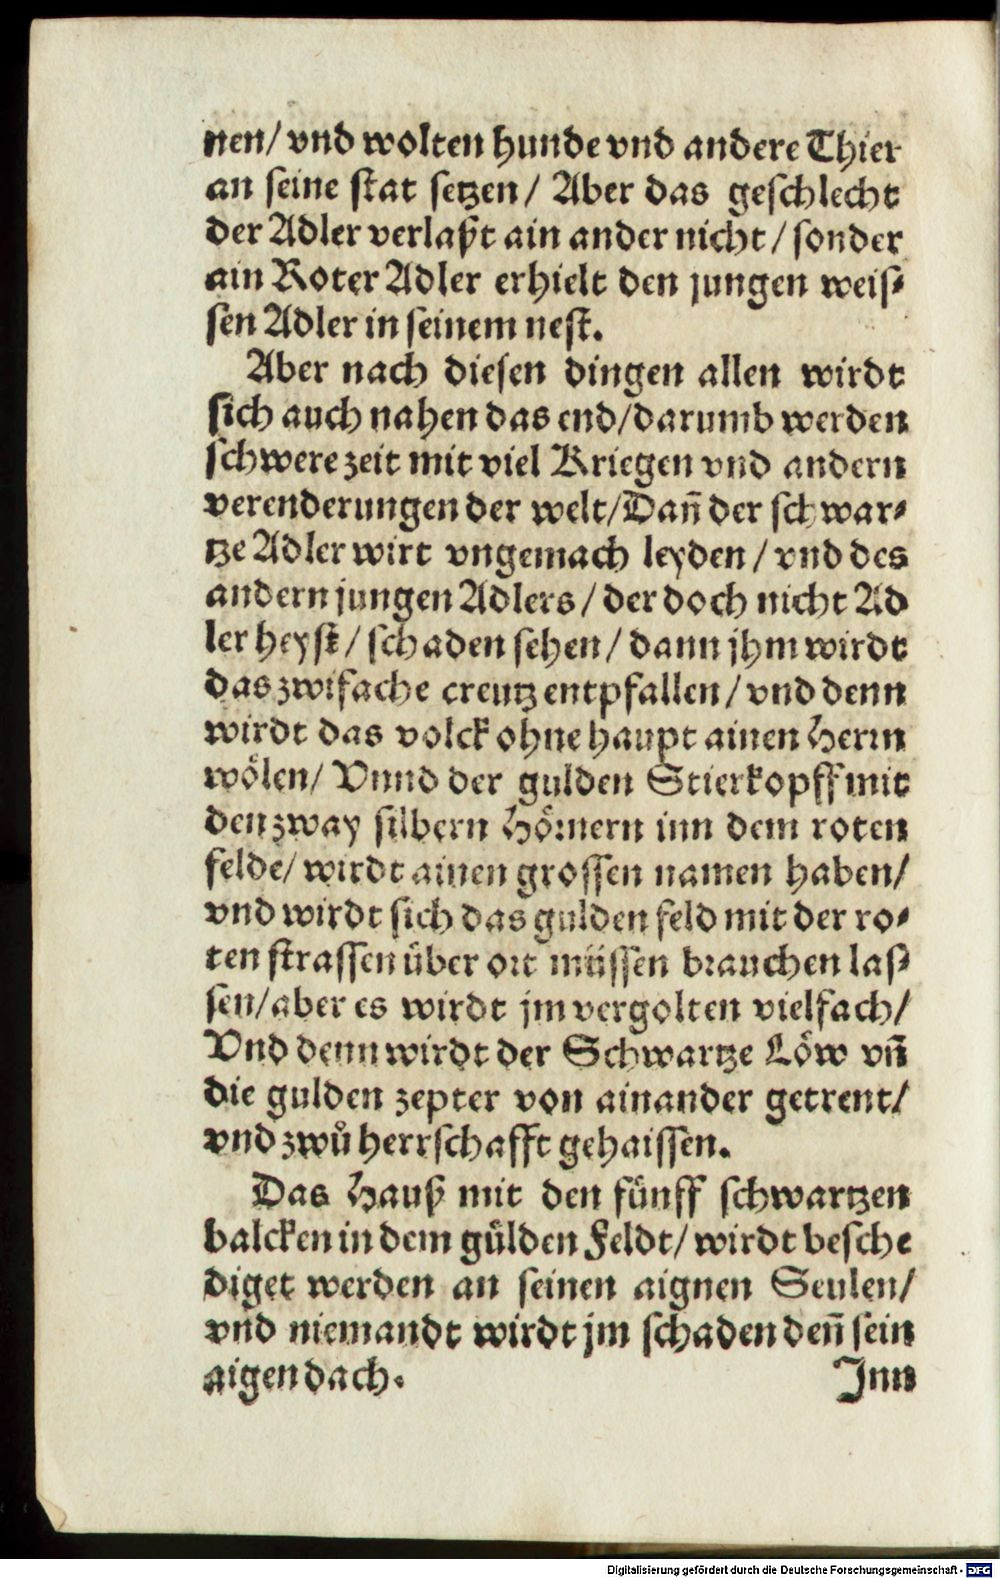 nen/ vnd wolten hunde vnd andere Thier
an seine stat setzen/ Aber das geschlecht
der Adler verlaßt ain ander nicht/ sonder
ain Roter Adler erhielt den jungen weis⸗
sen Adler in seinem nest.
Aber nach diesen dingen allen wirdt
sich auch nahen das end/darumb werden
schwere zeit mit viel Kriegen vnd andern
verenderungen der welt/Dañ der schwar⸗
tze Adler wirt vngemach leyden/ vnd des
andern jungen Adlers/ der doch nicht Ad
ler heyst/ schaden sehen/ dann jhm wirdt
das zwifache creutz entpfallen/ vnd denn
wirdt das volck ohne haupt ainen Herrn
wölen/ Vnnd der gulden Stierkopff mit
den zway silbern Hörnern inn dem roten
felde/ wirdt ainen grossen namen haben/
vnd wirdt sich das gulden feld mit der ro⸗
ten strassen über ort müssen brauchen las⸗
sen/aber es wirdt jm vergolten vielfach/
Vnd denn wirdt der Schwartze Löw vñ
die gulden zepter von ainander getrent/
vnd zwů herrschafft gehaissen.
Das Hauß mit den fünff schwartzen
balcken in dem gülden Feldt/ wirdt besche
diget werden an seinen aignen Seulen/
vnd niemandt wirdt jm schaden deñ sein
aigen dach. Inn
Digitalisierung gefördert durch die Deutsche Forschungsgemeinschaft - DFG